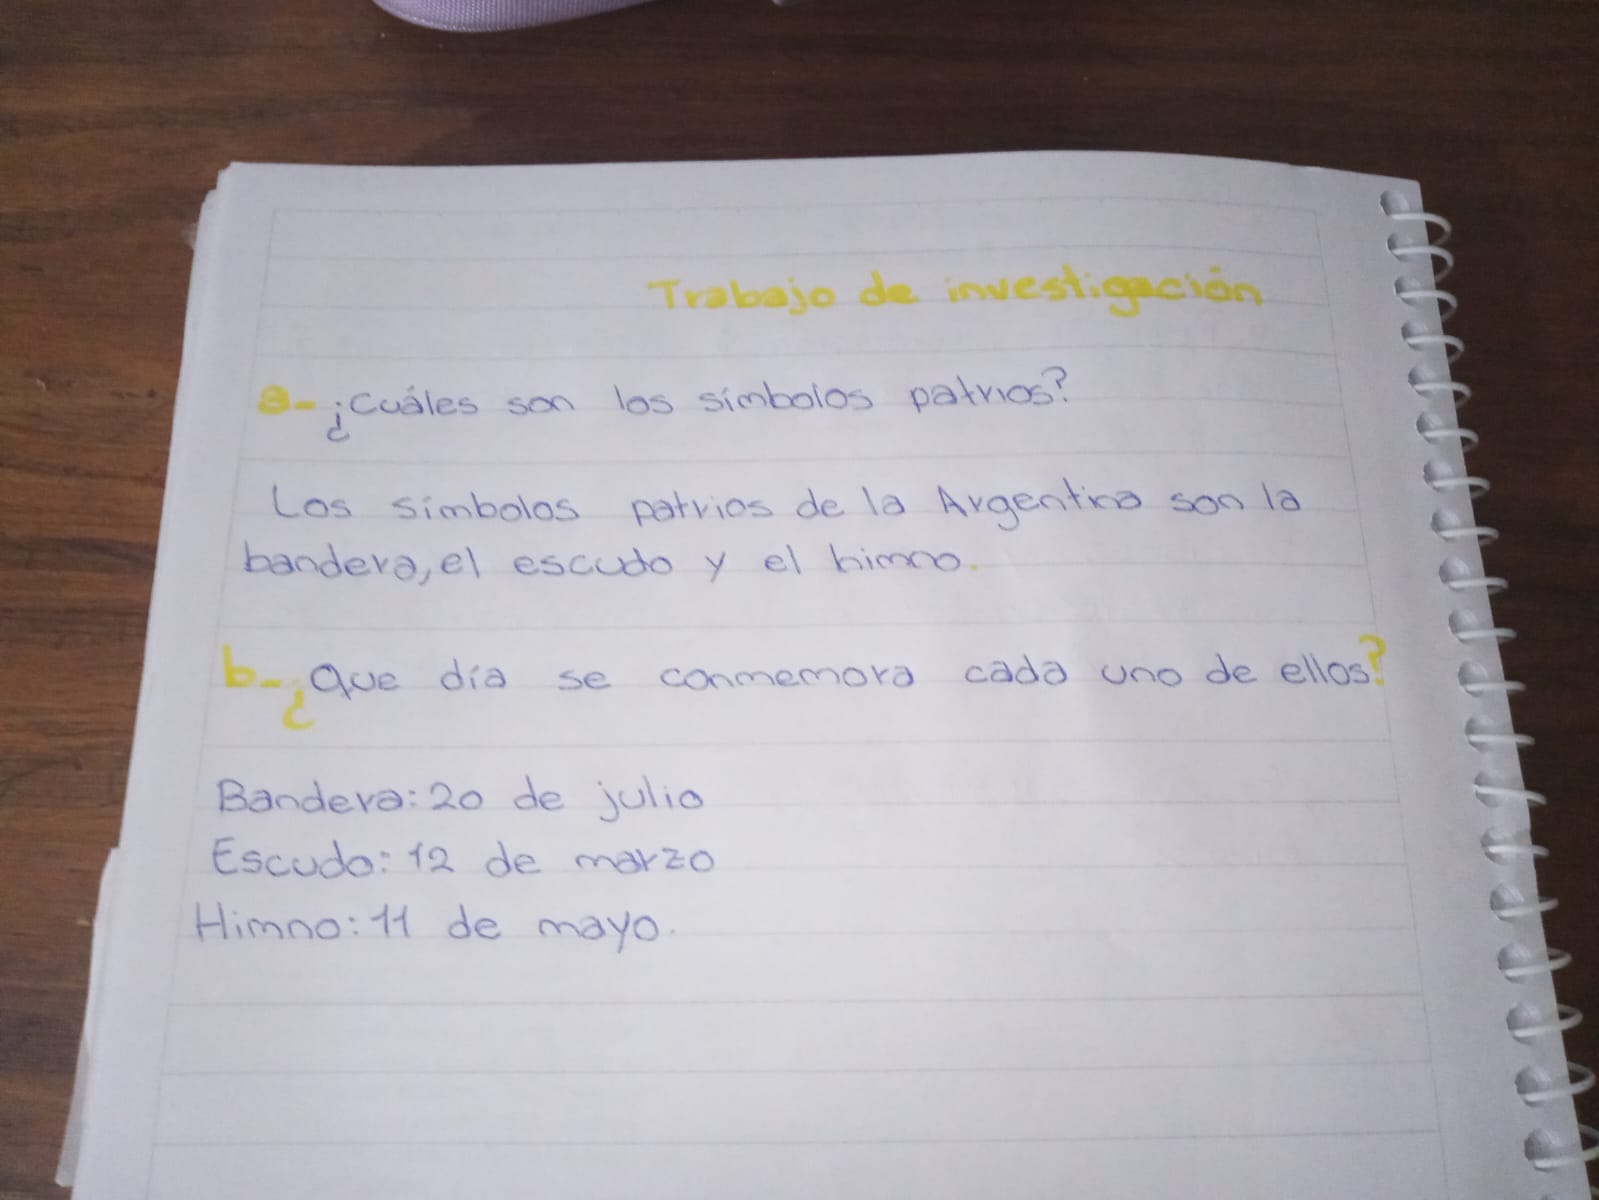 Trabajo de investigación
a- ¿Cuáles son los símbolos patrios?
Los símbolos patrios de la Argentina son la
bandera, el escudo y el himno.
b- ¿Que día se conmemora cada uno de ellos?
Bandera: 20 de julio
Escudo: 12 de marzo
Himno: 11 de mayo.